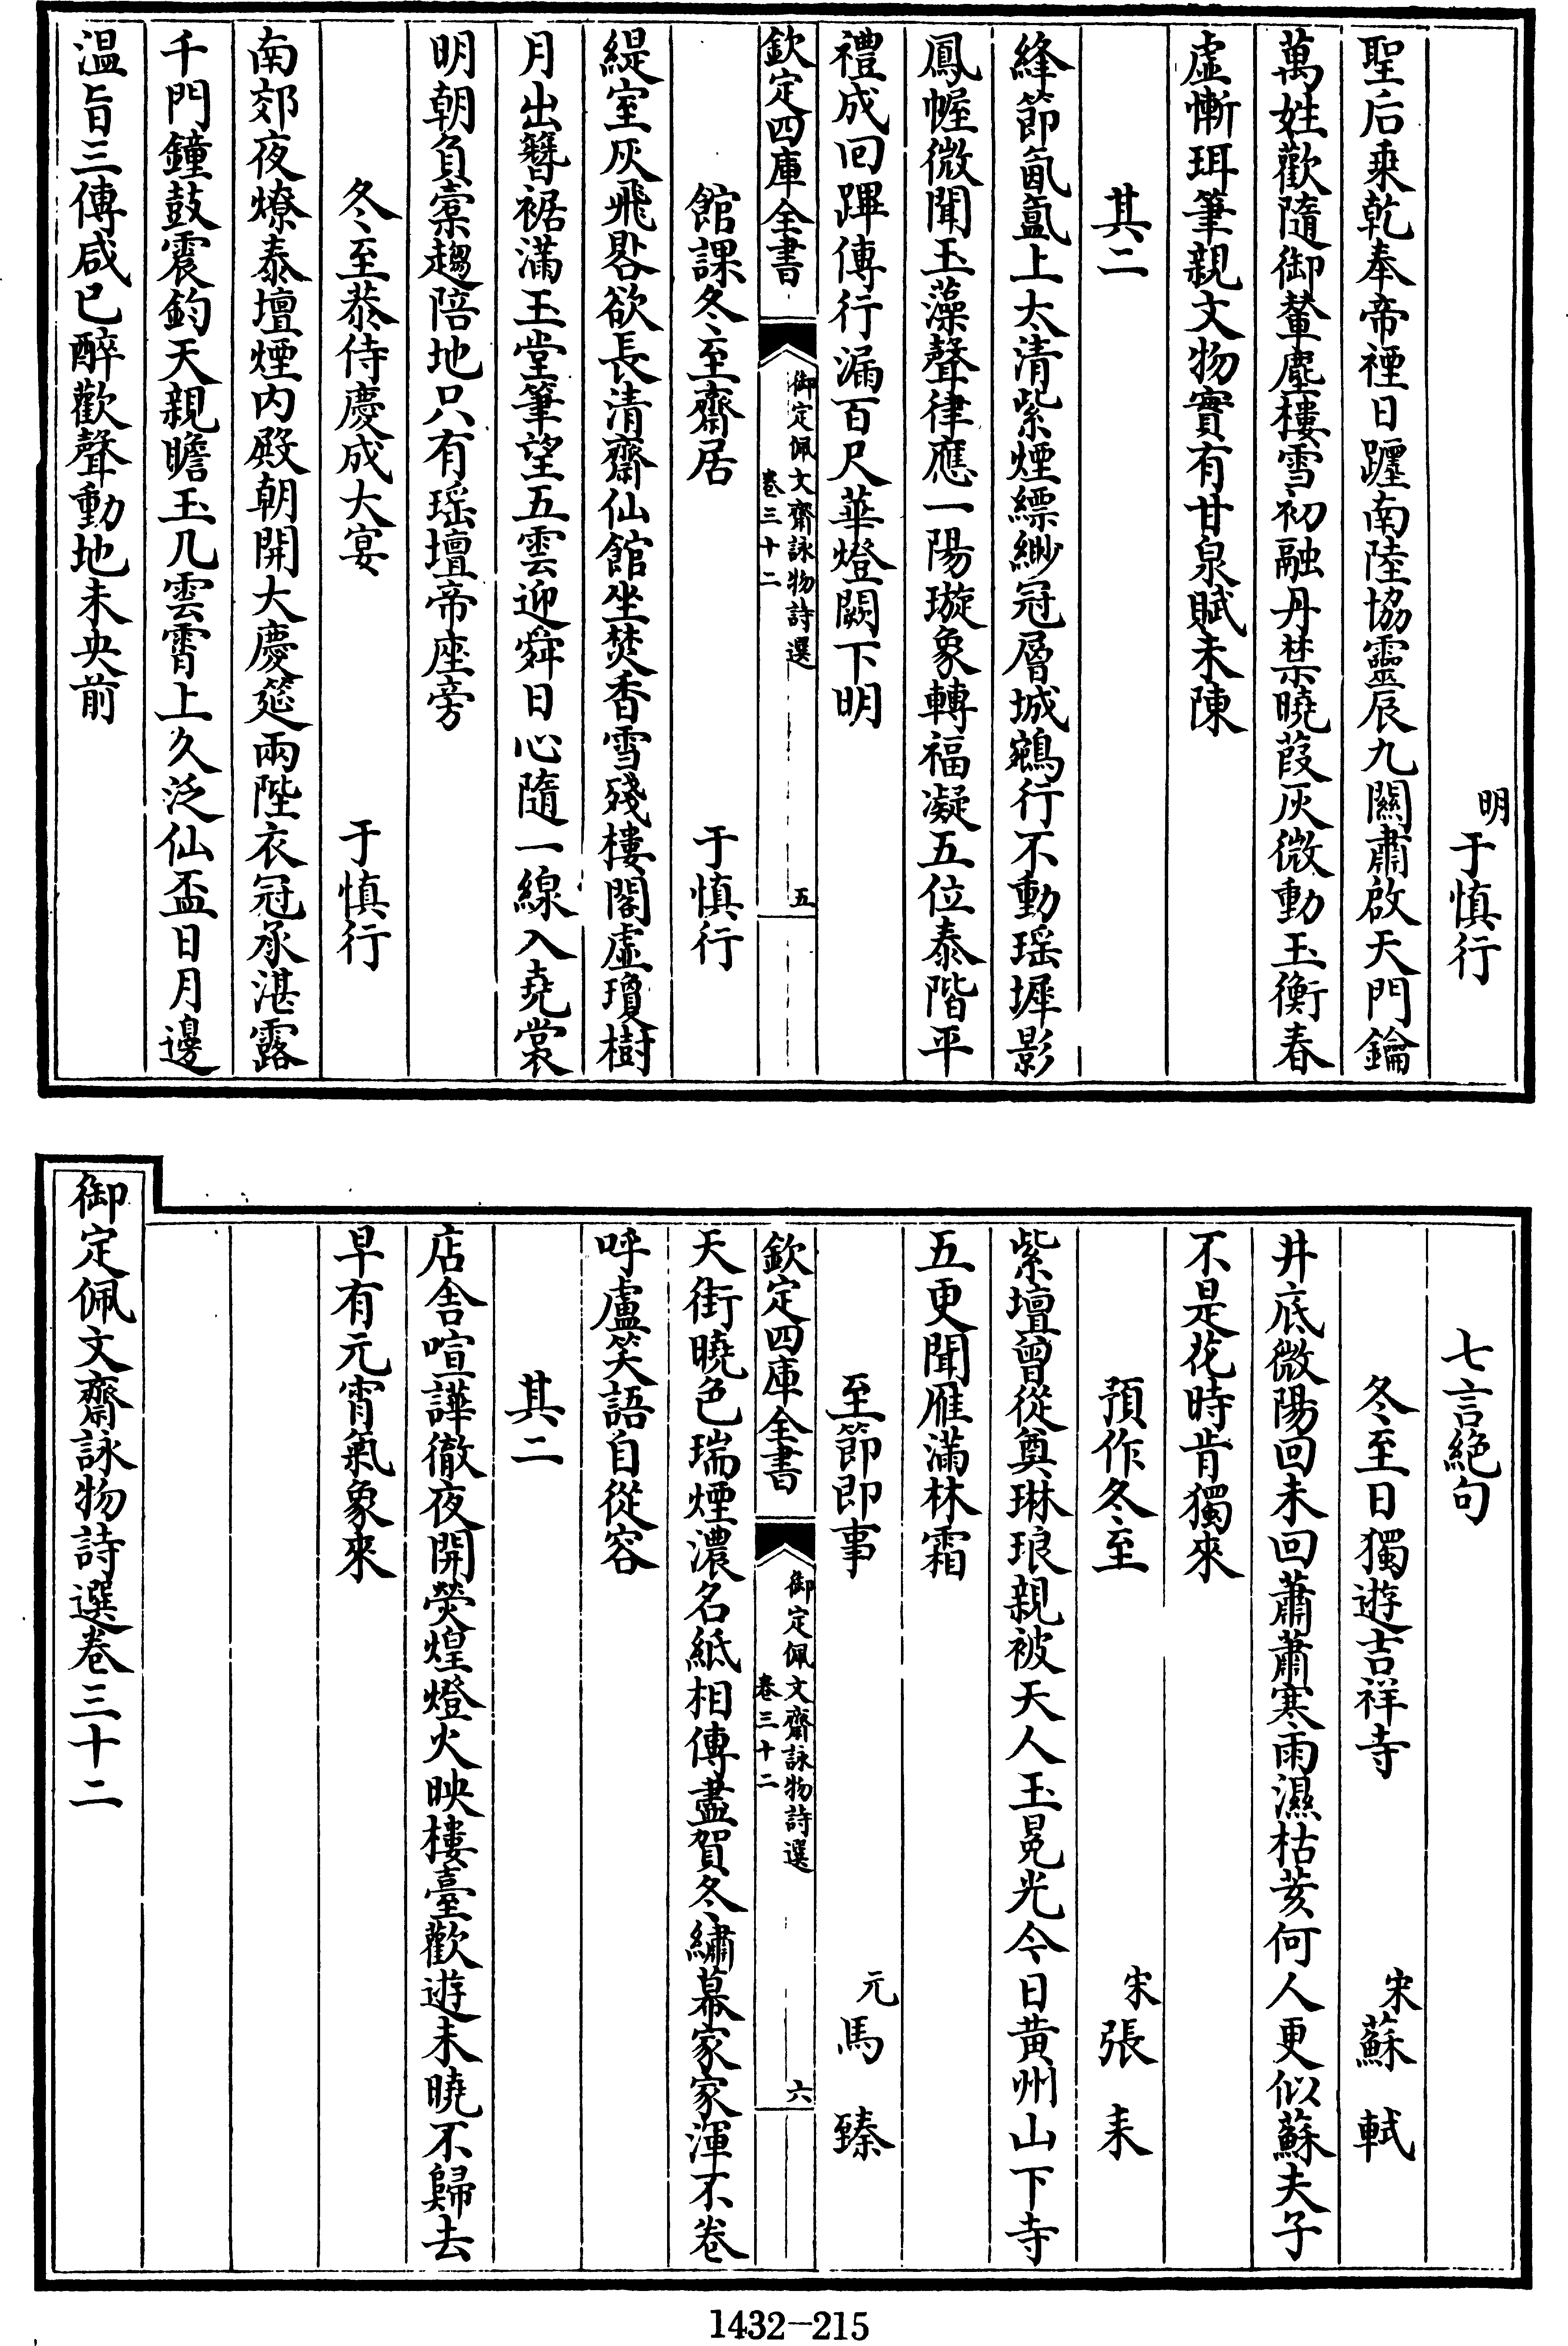 明于慎行
聖后乘乾奉帝禋日躔南陸協靈辰九關肅啟天門鑰
萬姓歡隨御輦塵樓雪初融丹禁曉葭灰微動玉衡春
虛慚珥筆親文物實有甘泉賦未陳
其二
絳節氤氳上太清紫煙縹緲冠層城鵷行不動瑶墀影
鳳幄微聞玉藻聲律應一陽璇象轉福凝五位泰階平
禮成回蹕傳行漏百尺華燈闕下明
欽定四庫全書
御定佩文齋詠物詩選
卷三十二
五
館課冬至齋居
于慎行
緹室灰飛晷欲長清齋仙館坐焚香雪殘樓閣虛瓊樹
月出簪裾滿玉堂筆望五雲迎舜日心隨一線入堯裳
明朝負橐趨陪地只有瑶壇帝座旁
冬至恭侍慶成大宴
于慎行
南郊夜燎泰壇煙内殿朝開大慶筵兩陛衣冠承湛露
千門鐘鼓震鈞天親瞻玉几雲霄上久泛仙盃日月邊
温旨三傳咸已醉歡聲動地未央前
七言絶句
冬至日獨遊吉祥寺
宋蘇軾
井底微陽回未回蕭蕭寒雨濕枯荄何人更似蘇夫子
不是花時肯獨來
預作冬至
宋張耒
紫壇曾從奠琳琅親被天人玉冕光今日黄州山下寺
五更聞雁滿林霜
至節即事
元馬臻
欽定四庫全書
御定佩文齋詠物詩選
卷三十二
六
天街曉色瑞煙濃名紙相傳盡賀冬繡幕家家渾不卷
呼盧笑語自從容
其二
店舍喧譁徹夜開熒煌燈火映樓臺歡遊未曉不歸去
早有元宵氣象來
御定佩文齋詠物詩選卷三十二
1432-215